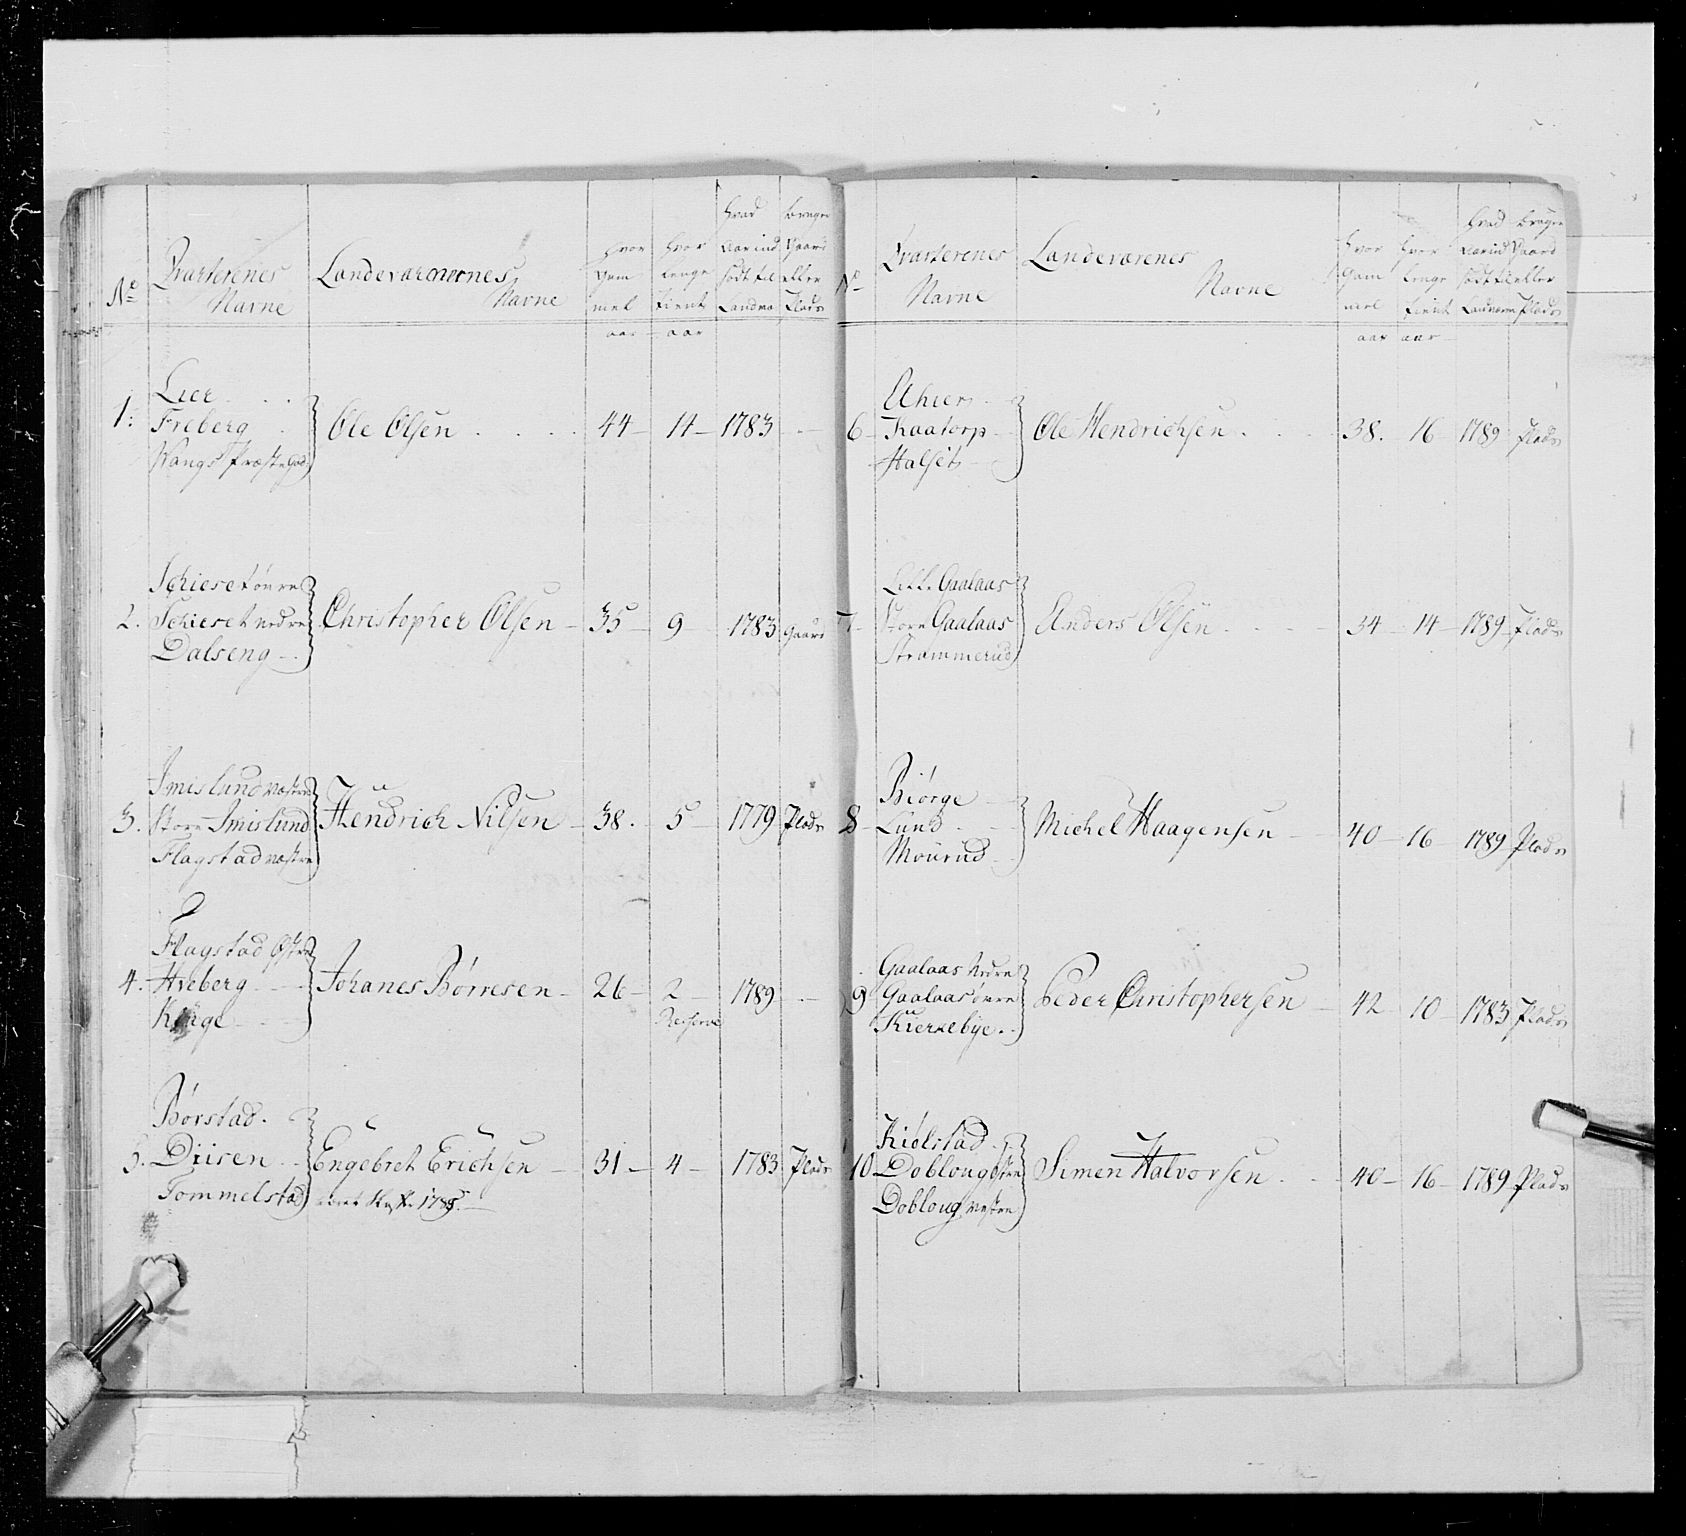 No
Qvarterenes
Navne
Landeværnernes
Navne
Hvor
Gam
mel
aar
Hvor
lenge
tient
aar
Hvad
Aar ind
født til
Landvæ
bruger
Gaard
eller
Plads
1. Lier
Freberg
Wangs Præste Gad
Ole Olsen 44 14 1783
2. Schieset øvre
Schieset nedre
Dalseng
Christopher Olsen 35 9 1783 gaard
3. Imislund væstre
Store Imislund
Flagstad væstre
Hendrich Nilsen 38. 5 1779 Plads
4. Flagstad Østre
Hveberg
Kørge
Johanes Børresen 26 2 1789
Reserve
5. Børstad.
Diisen
Tommelstad
Engebret Erichsen 31 4 1783 Plads
1788.
No
Qvarterenes
Navne
Landeværenes
Navne
Hvor
Gam
mel
aar
Hvor
lenge
tient
aar
Hvad
Aar ind
født til
Landværn
bruger
Gaard
eller
Plads
6 Ahier
Kaatorp
Halset
Ole Hendrichsen 38. 16 1789 Plads
7 Lille Gaalaas
Store Gaalaas
Strømmerud
Anders Olsen 34 14 1789 Plads
8 Biørge
Lund
Mourud
Michel Haagensen 40 16 1789 Plads
9 Gaalaas Nedre
Gaalaas øvre
Kierkebye
Peder Christophersen 42 10 1783 Plads
10 Kiølstad
Doblong østre
Doblong væstre
Simen Halvorsen 40 16 1789 Plads